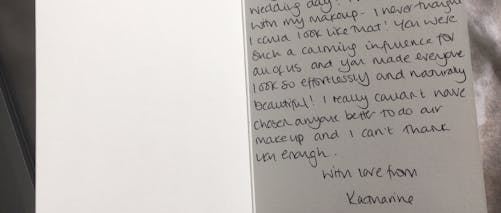 wedding day!
with my makeup - I never thought
I could look like that! You were
such a calming influence for
all of us and you made everyone
look so effortlessly and naturally
beautiful! I really couldn't have
chosen anyone better to do our
makeup and I can't thank
you enough.
With love from
Katharine